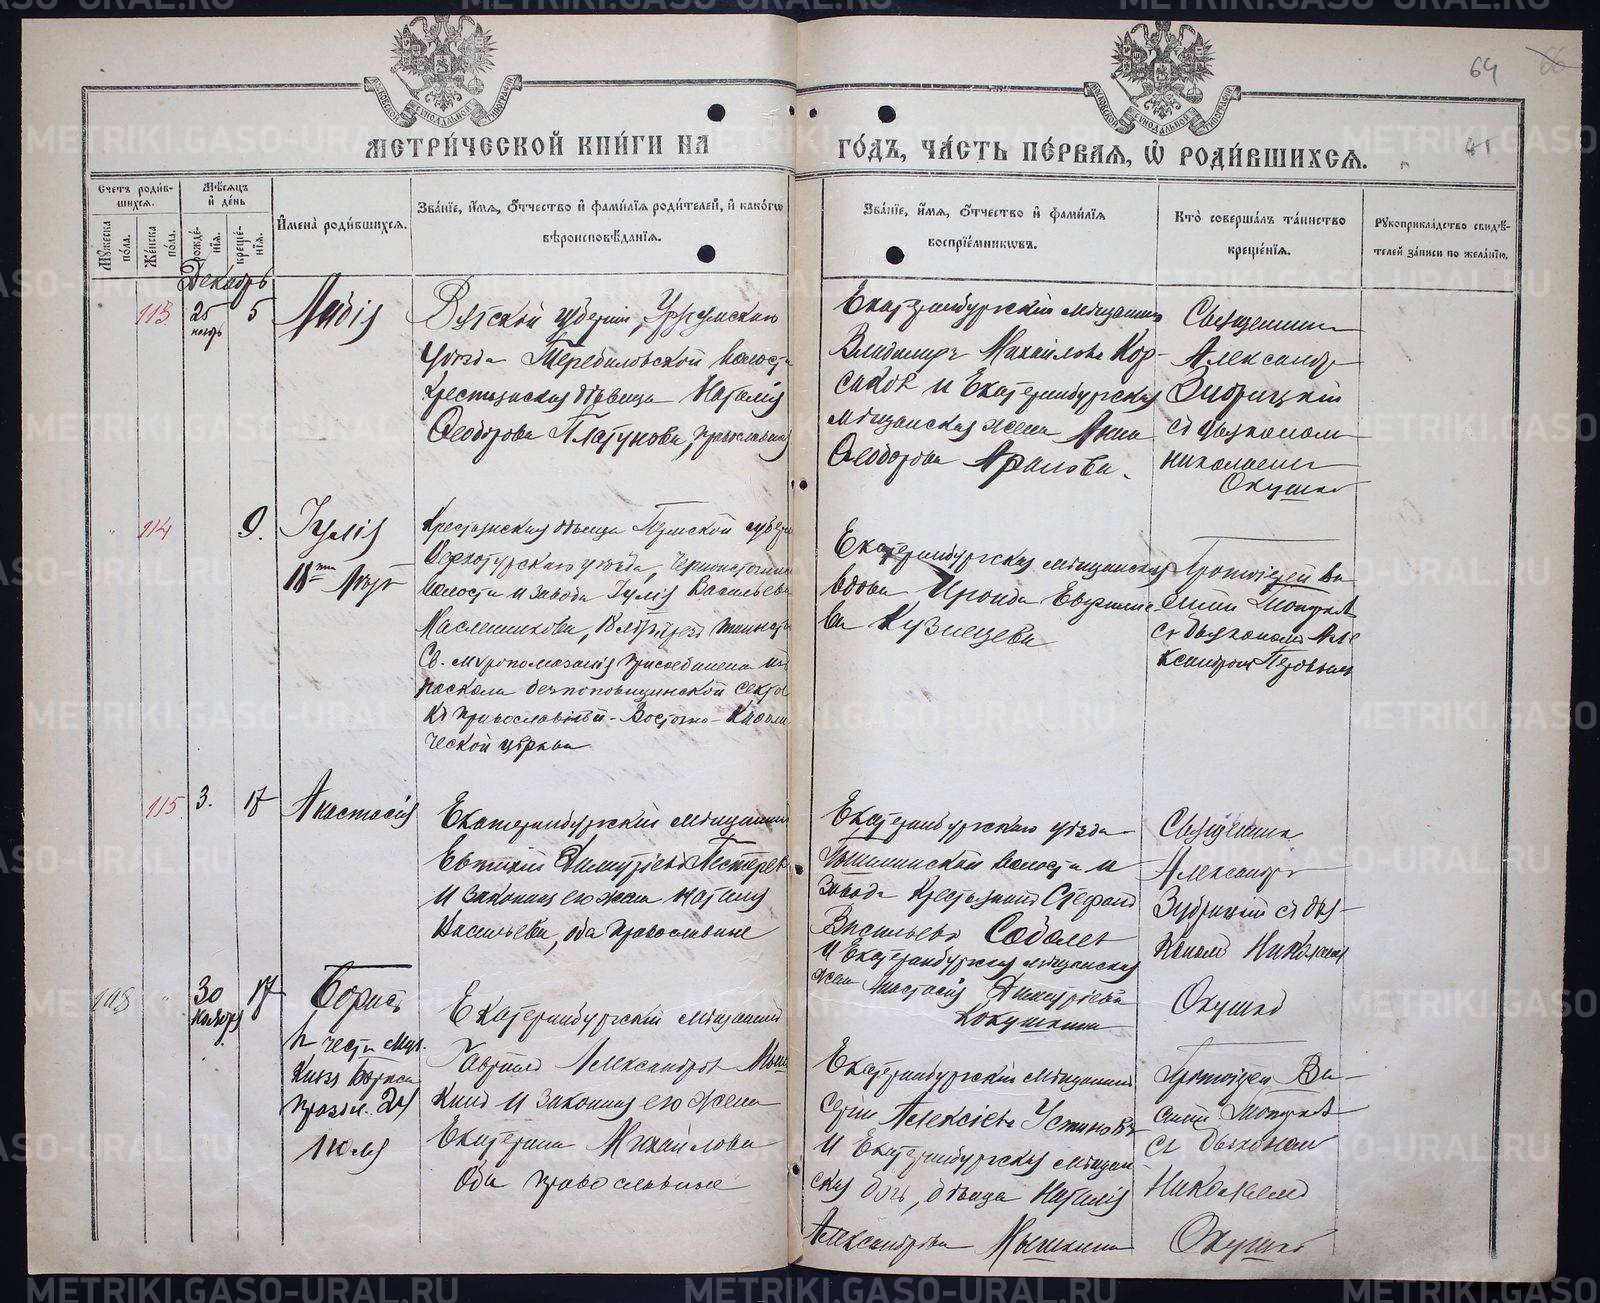 64
МЕТРИ́ЧЕСКОЙ КНИ́ГИ НА
ГО́ДЪ, ЧА́СТЬ ПЕ́РВАЯ, Ѡ҆ РОДИ́ВШИХСЯ.
Счетъ роди́в-
шихся.
Му́жеска по́ла.
Же́нска по́ла.
Мѣ́сяцъ и҆ де́нь
рожде́нїя.
креще́нїя.
И҆мена̀ роди́вшихся.
Зва́нїе, и҆́мя, ѻ҆́тчество и҆ фами́лїя роди́телей, и҆ како́гѡ
вѣроисповѣ́данїя.
Зва́нїе, и҆́мя, ѻ҆́тчество и҆ фами́лїя
воспрїе́мникѡвъ.
Кто̀ соверша́лъ та́инство
креще́нїя.
Рꙋкоприкла́дство свидѣ́-
телей за́писи по жела́нїю.
Декабрь
113
25
5
Вятской губерніи, Уржумскаго
уѣзда Теребиловской волости
крестьянская дѣвица Наталія
Ѳеодорова Платунова, православная
Екатеринбургскій мѣщанинъ
Владимиръ Михайловъ Кор-
саковъ и Екатеринбургская
мѣщанская жена Анна
Ѳеодорова Арапова.
Священникъ
Александръ
Зубрицкій
съ діакономъ
Николаемъ
114
9.
Іулія
18ти лѣтъ
Крестьянская дѣвица Пермской губерн
Верхотурскаго уѣзда,
волости и завода Іулія Васильева
Масленникова, 18 лѣтъ чрезъ таинство
Св. мѵропомазанія присоединена изъ
раскола безпоповщинской секты
къ православной-Восточно-Каѳоли
ческой церкви
Екатеринбургская мѣщанская
вдова Ираида Евфиміе
ва Кузнецова
Протоіерей Ва
силій
съ діакономъ Але
ксандромъ
115
3.
17
Анастасія
Екатеринбургскій мѣщанинъ
Евтихій Димитріевъ
и законная его жена Наталія
Васильева, оба православные
Екатеринбургскаго уѣзда
волости и
завода крестьянинъ Стефанъ
Васильевъ Соболевъ
и Екатеринбургская мѣщанская
жена Анастасія Димитріева
Кокушкина
Священникъ
Александръ
Зубрицкій съ діа-
кономъ Николаемъ
30
ноября
17
Борисъ
въ честь муч.
Князя Бориса
праздн. 24
Іюля
Екатеринбургскій мѣщанинъ
Гавріилъ Александровъ Мыш
кинъ и законная его жена
Екатерина Михайлова
Оба православные
Екатеринбургскій мѣщанинъ
Сергій Алексіевъ Устиновъ
и Екатеринбургская мѣщан
ская дочь, дѣвица Наталія
Александрова Мышкина
Протоіерей Ва-
силій
съ діакономъ
Николаемъ
METRIKI.GASO-URAL.RU